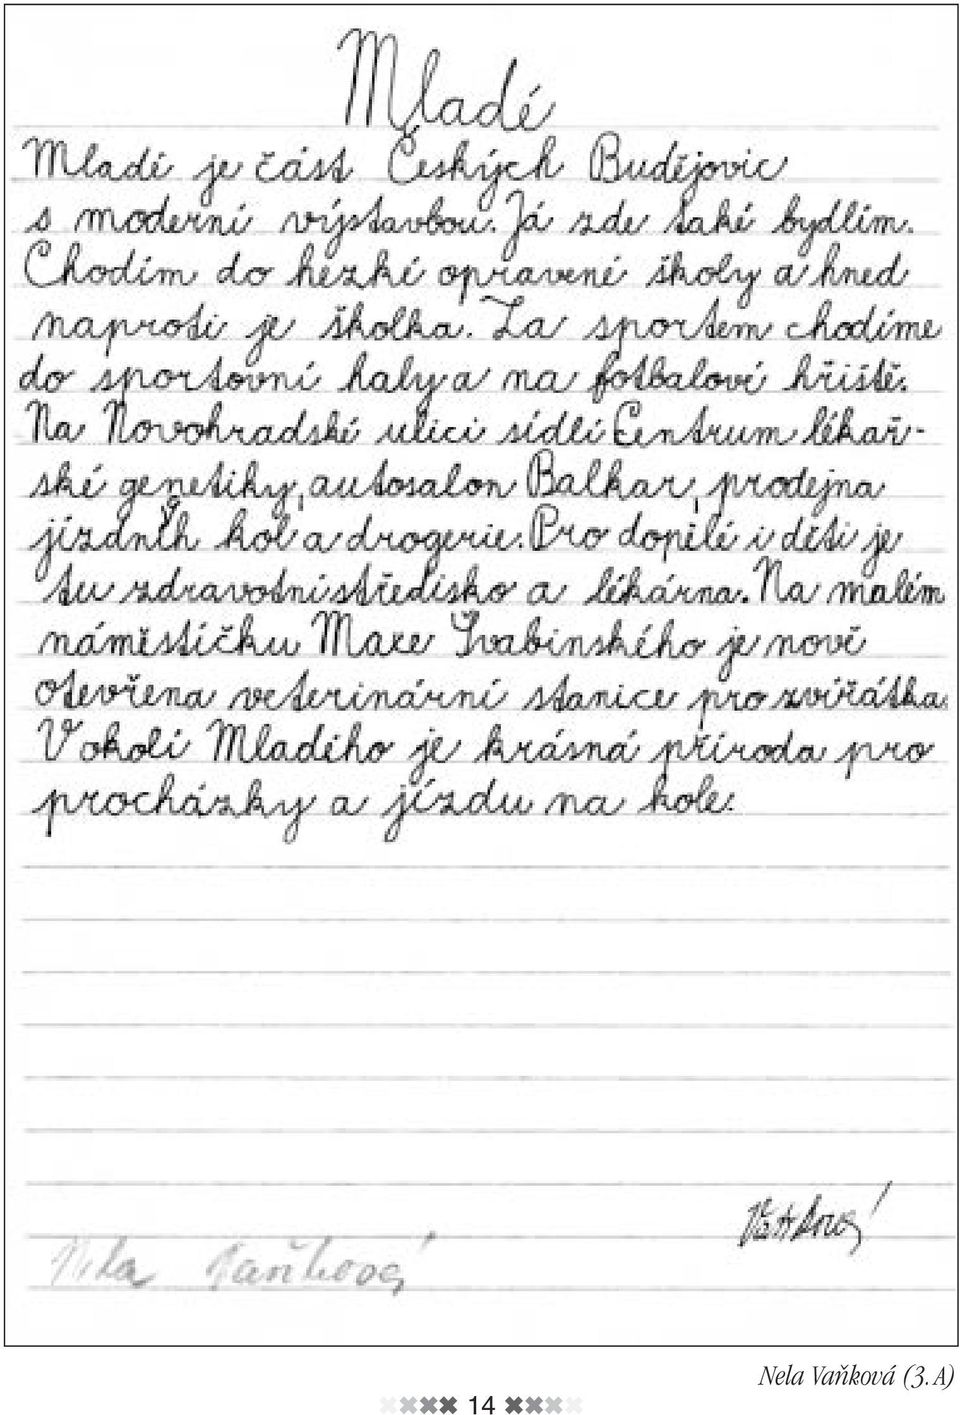 Mladé
Mladé je část Českých Budějovic
s moderní výstavbou. Já zde také bydlím.
Chodím do hezké opravené školy a hned
naproti je školka. Za sportem chodíme
do sportovní haly a na fotbalové hřiště.
Na Novohradské ulici sídlí Centrum lékař-
ské genetiky, autosalon Balkar, prodejna
jízdních kol a drogerie. Pro dopělé i děti je
tu zdravotní středisko a lékárna. Na malém
náměstíčku Maxe Švabinského je nově
otevřena veterinární stanice pro zvířátka.
V okolí Mladého je krásná příroda pro
procházky a jízdu na kole.
Nela Vaňková
Nela Vaňková (3. A)
14